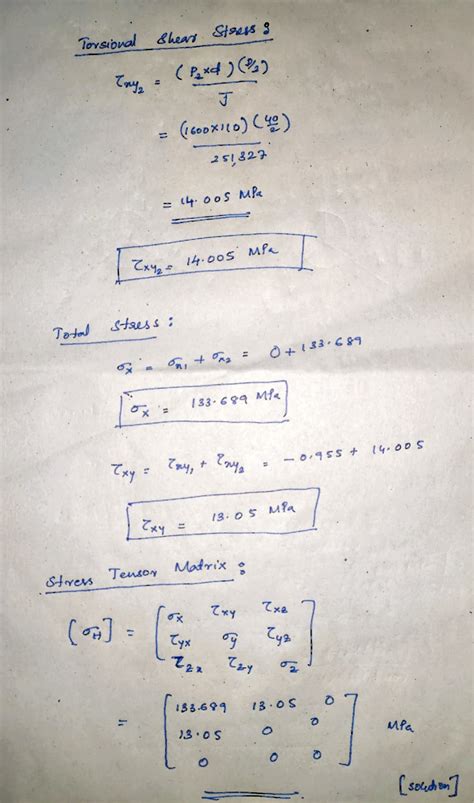 Torsional Shear Stress :
τxy₂ = (P₂×d) (D/2) / J
= (1600×110) (40/2) / 251,327
= 14.005 MPa
τxy₂ = 14.005 MPa
Total Stress :
σx = σx₁ + σx₂ = 0+133.689
σx = 133.689 MPa
τxy = τxy₁ + τxy₂ = -0.955 + 14.005
τxy = 13.05 MPa
Stress Tensor Matrix :
[σH] = [ σx τxy τxz
τyx σy τyz
τzx τzy σz ]
= [ 133.689 13.05 0
13.05 0 0
0 0 0 ] MPa
[solution]